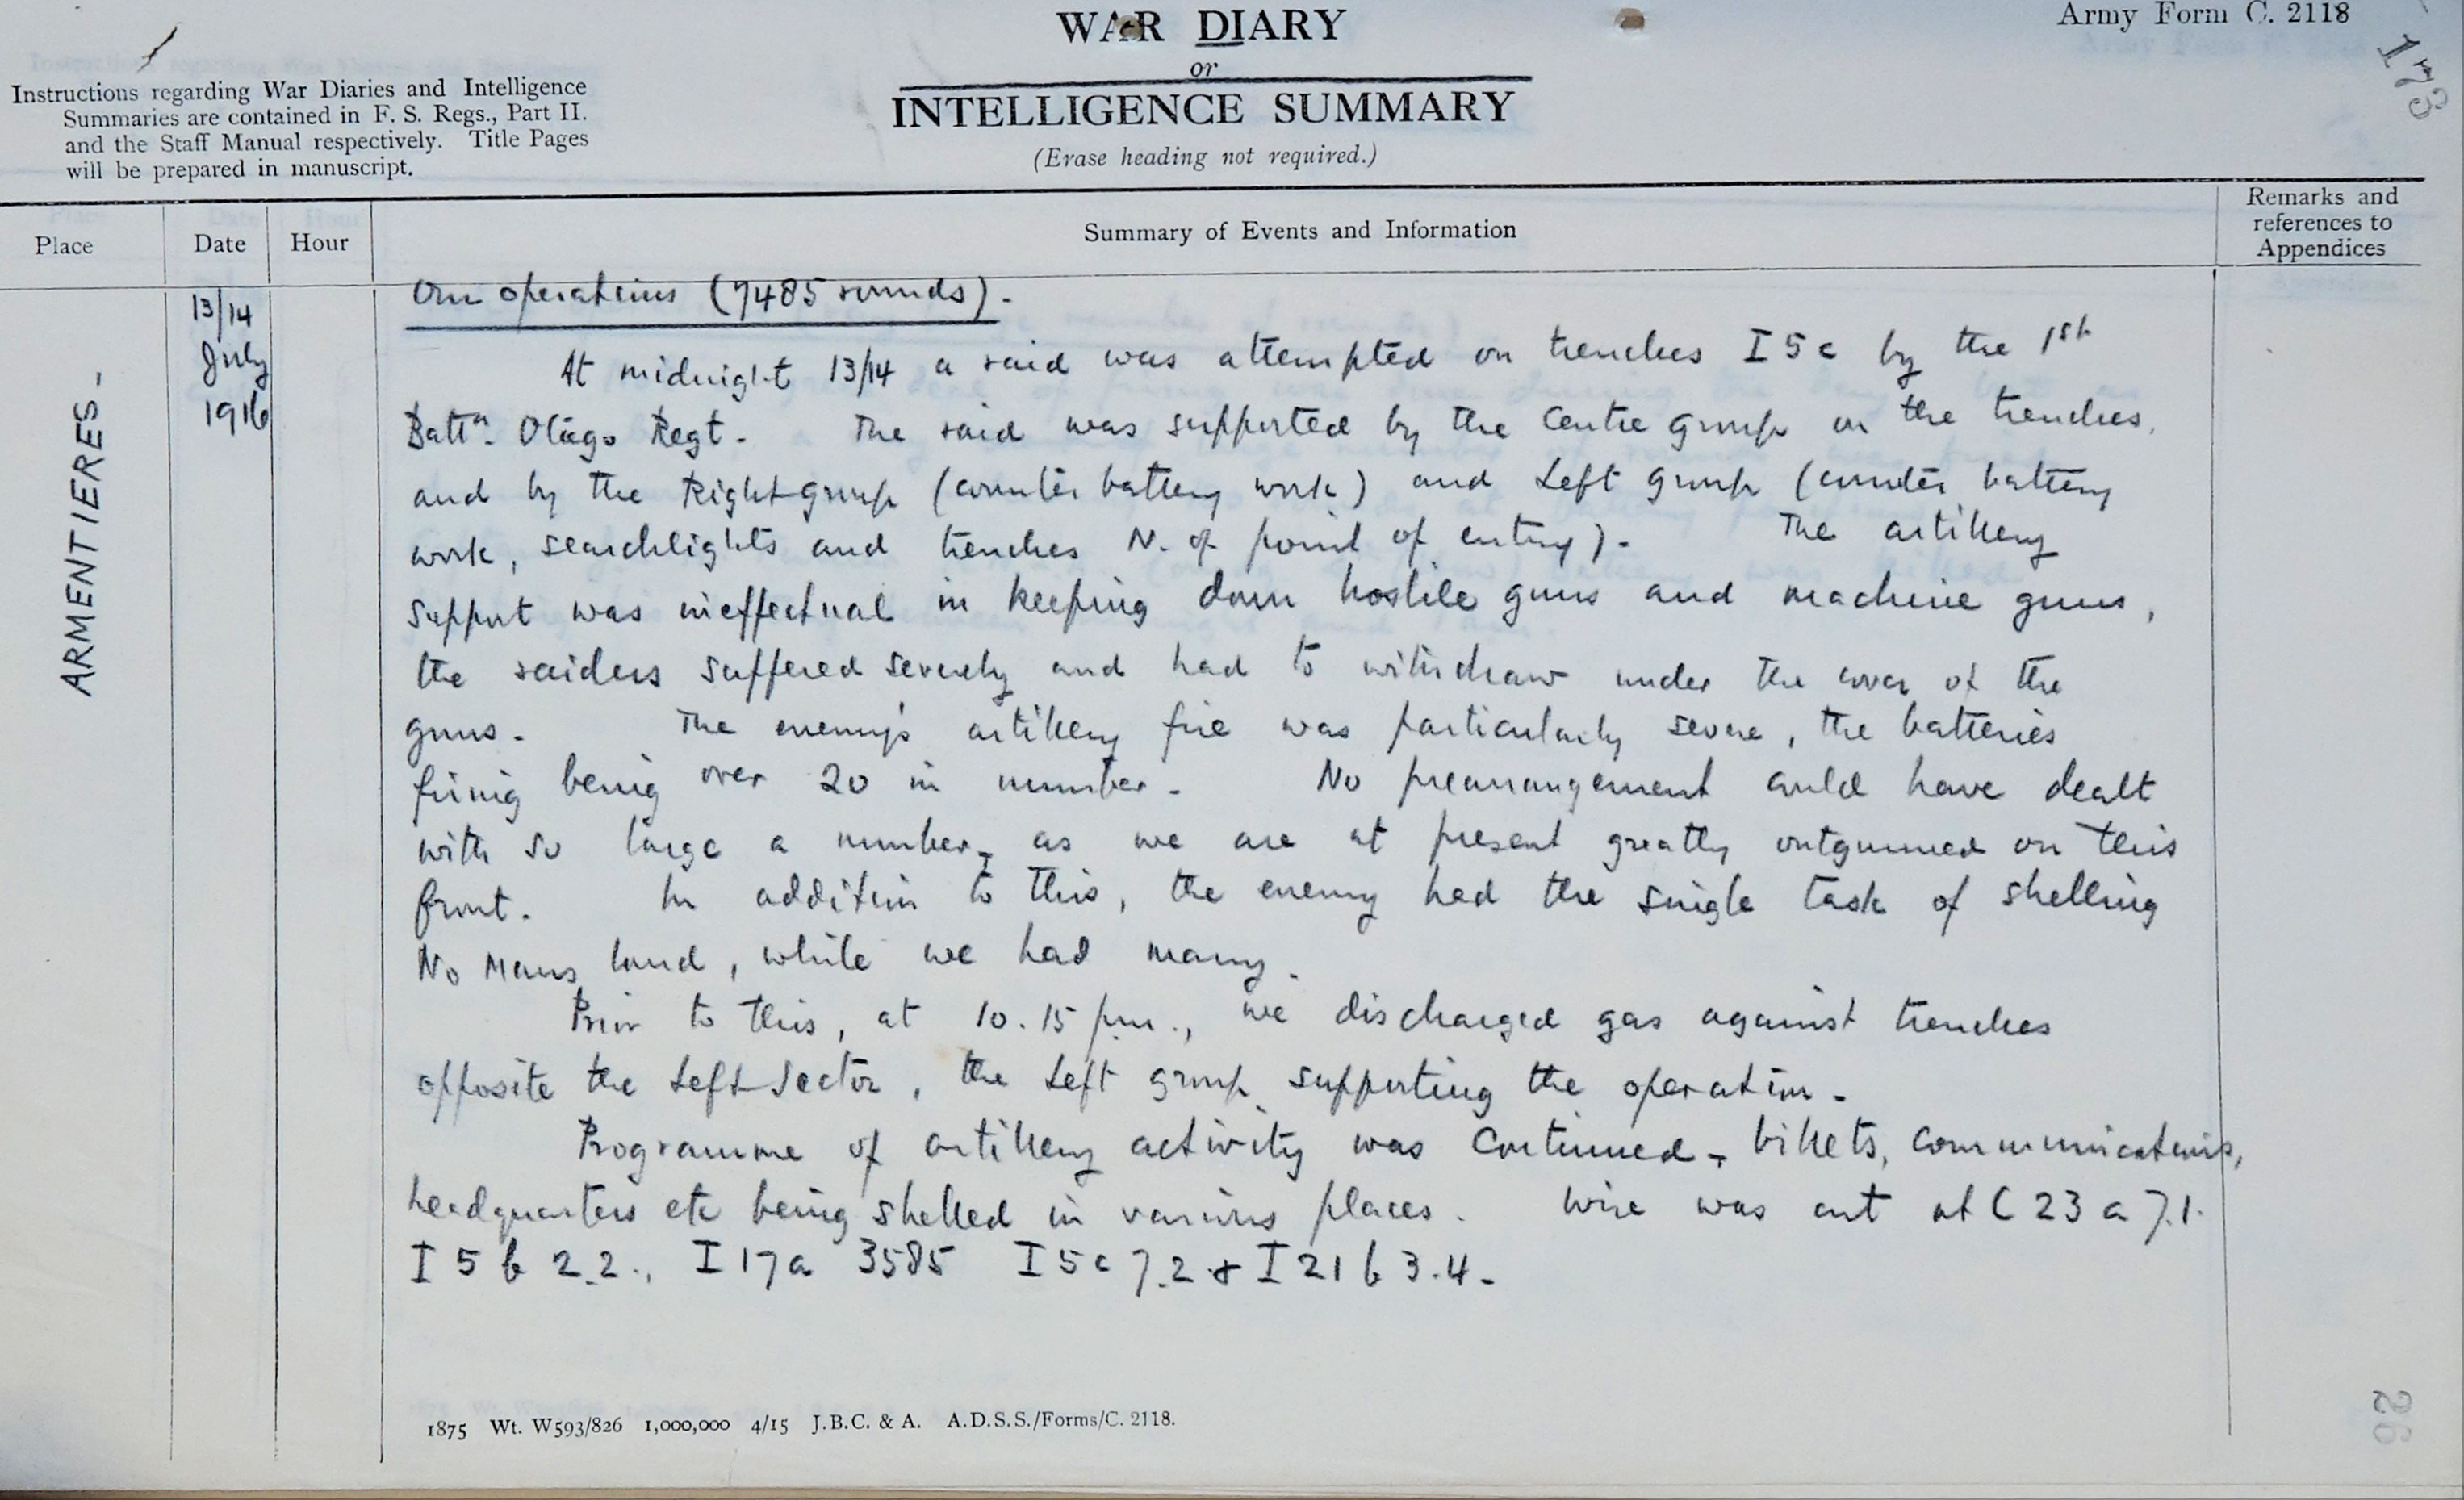 WAR DIARY
or
INTELLIGENCE SUMMARY
(Erase heading not required.)
Army Form C. 2118
173
Instructions regarding War Diaries and Intelligence
Summaries are contained in F. S. Regs., Part II.
and the Staff Manual respectively. Title Pages
will be prepared in manuscript.
Place
Date
Hour
Summary of Events and Information
Remarks and
references to
Appendices
ARMENTIERES -
13/14
July
1916
Our operations (7485 rounds).
At midnight 13/14 a raid was attempted on trenches I 5 c by the 1st
Battn. Otago Regt. The raid was supported by the Centre group on the trenches,
and by the Right group (counter battery work) and Left group (counter battery
work, searchlights and trenches N. of point of entry). The artillery
support was ineffectual in keeping down hostile guns and machine guns,
the raiders suffered severely and had to withdraw under the cover of the
guns. The enemy's artillery fire was particularly severe, the batteries
firing being over 20 in number. No prearrangement could have dealt
with so large a number, as we are at present greatly outgunned on this
front. In addition to this, the enemy had the single task of shelling
No Mans land, while we had many.
Prior to this, at 10.15 p.m., we discharged gas against trenches
opposite the Left Sector, the Left group supporting the operation.
Programme of artillery activity was continued, billets, communications,
headquarters etc being shelled in various places. Wire was cut at C 23 a 7.1.
I 5 b 2.2., I 17a 3585 I 5 c 7.2 & I 21 b 3.4.
1875 Wt. W593/826 1,000,000 4/15 J.B.C. & A. A.D.S.S./Forms/C. 2118.
26